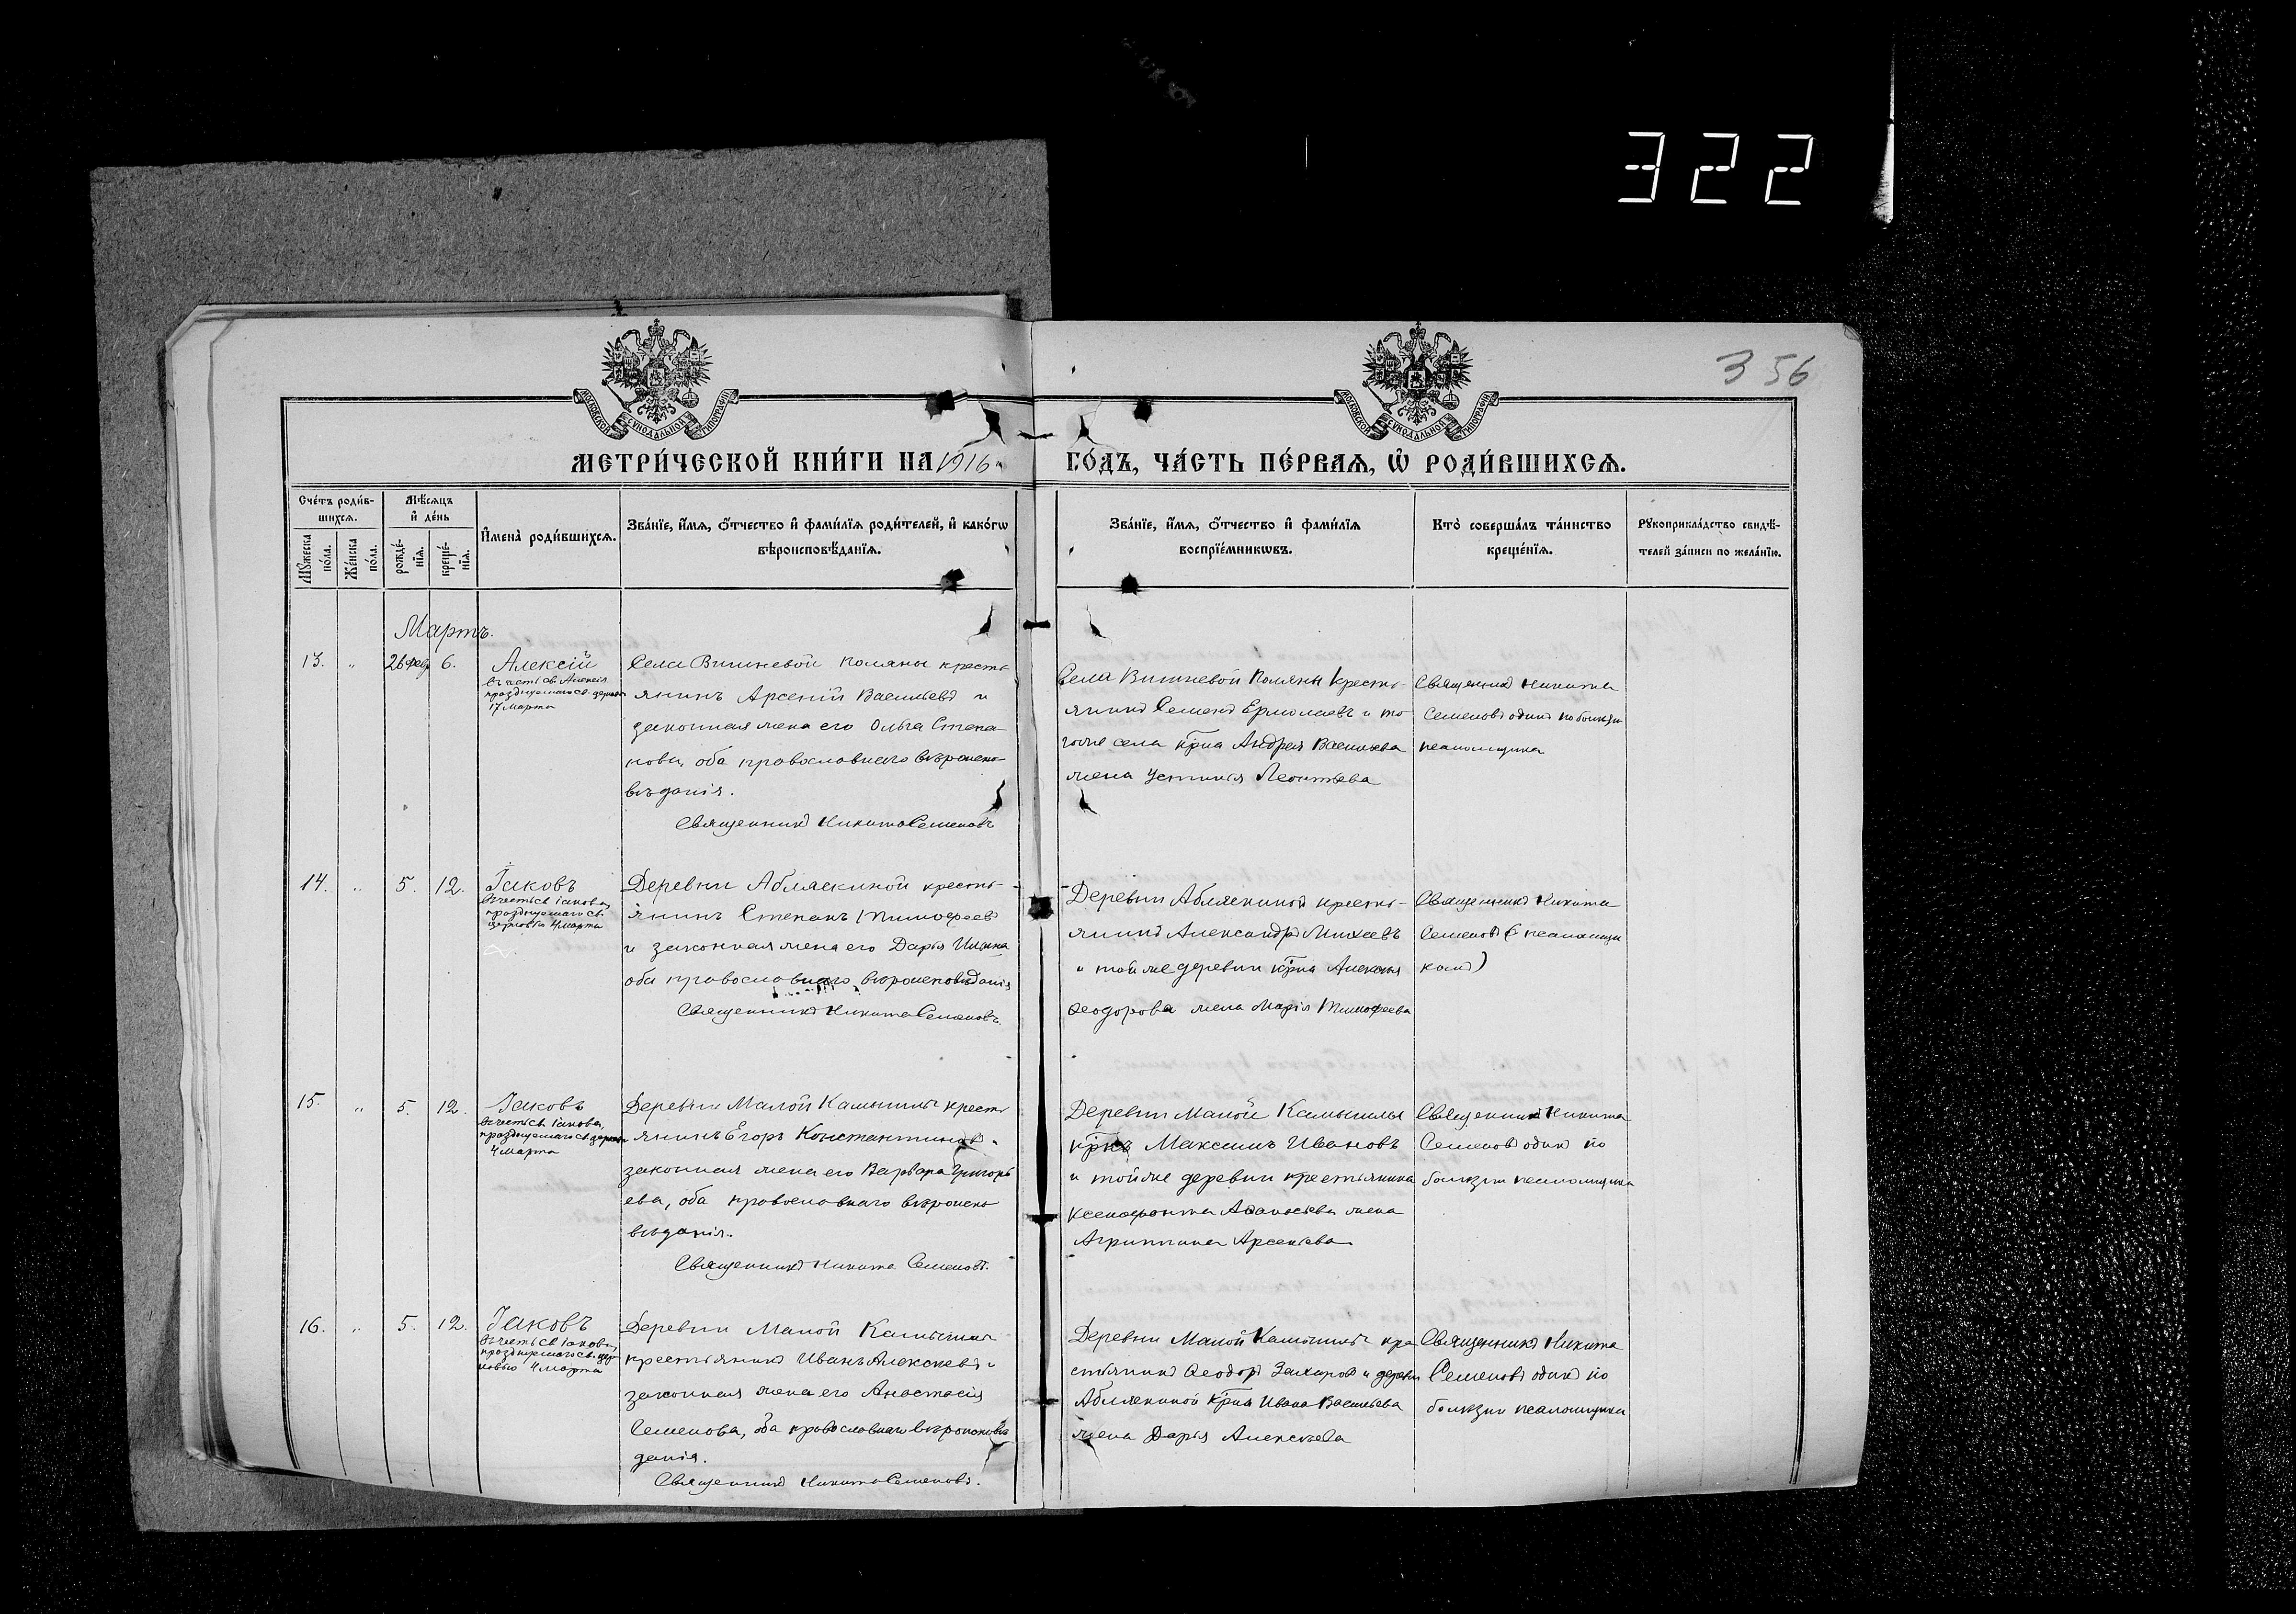 322
356
МОСКОВСКОЙ СѴНОДАЛЬНОЙ ТИПОГРАФІИ
МОСКОВСКОЙ СѴНОДАЛЬНОЙ ТИПОГРАФІИ
МЕТРИ́ЧЕСКОЙ КНИ́ГИ НА 1916 ГО́ДЪ, ЧА́СТЬ ПЕ́РВАѦ, Ѡ҆ РОДИ́ВШИХСѦ.
Сче́тъ роди́в-
шихсѧ.
Мѣ́сѧцъ
и҆ де́нь
Мꙋ́жеска по́ла.
Же́нска по́ла.
рожде́-нїѧ.
креще́-нїѧ.
И҆мена̀ роди́вшихсѧ.
Зва́нїе, и҆́мѧ, ѻ҆́тчество и҆ фами́лїѧ роди́телей, и҆ како́гѡ
вѣроисповѣ́данїѧ.
Зва́нїе, и҆́мѧ, ѻ҆́тчество и҆ фами́лїѧ
воспрїе́мникѡвъ.
Кто̀ соверша́лъ та́инство
креще́нїѧ.
Рꙋкоприкла́дство свидѣ́-
телей за́писи по жела́нїю.
Мартъ.
13. " 26 февр 6.
Алексій
въ честь св. Алексія
празднуемаго св. церков
17 Марта
Села Вишневой поляны кресть
янинъ Арсеній Васильевъ и
законная жена его Ольга Степа-
нова, оба православнаго вѣроиспо-
вѣданія.
Священникъ Никита Семеновъ
Села Вишневой Поляны кресть-
янинъ Семенъ Ермолаевъ и то
гоже села кр̅на Андрея Васильева
жена Устинія Леонтьева
Священникъ Никита
Семеновъ одинъ по болѣзни
псаломщика
14. " 5. 12.
Іаковъ
въ честь св. Іакова,
празднуемаго св.
церковью 4 марта
Деревни Абляскиной кресть-
янинъ Степанъ Тимофеевъ
и законная жена его Дарья Ильина
оба православнаго вѣроисповѣданія
Священникъ Никита Семеновъ.
Деревни Абляскиной кресть-
янинъ Александръ Михеевъ
и той же деревни кр̅на Алексѣя
Ѳеодорова жена Марія Тимофеева
Священникъ Никита
Семеновъ (с псаломщи
комъ)
15. " 5. 12.
Іаковъ
въ честь св. Іакова,
празднуемаго св. церков
4 марта
Деревни Малой Камышлы кресть
янинъ Егоръ Константиновъ и
законная жена его Варвара Григорь
ева, оба православнаго вѣроиспо
вѣданія.
Священникъ Никита Семеновъ.
Деревни Малой Камышлы
кр̅нъ Максимъ Ивановъ
и тойже деревни крестьянина
Ксенофонта Аѳанасьева жена
Агриппина Арсеньева
Священникъ Никита
Семеновъ одинъ по
болѣзни псаломщика
16. " 5. 12.
Іаковъ
въ честь св. Іакова,
празднуемаго св. цер
ковью 4 марта
Деревни Малой Камышлы
крестьянинъ Иванъ Алексѣевъ и
законная жена его Анастасія
Семенова, оба православнаго вѣроисповѣ
данія.
Священникъ Никита Семеновъ.
Деревни Малой Камышлы кре
стьянинъ Ѳеодоръ Захаровъ и деревни
Абляскиной кр̅на Ивана Васильева
жена Дарья Алексѣева
Священникъ Никита
Семеновъ одинъ по
болѣзни псаломщика